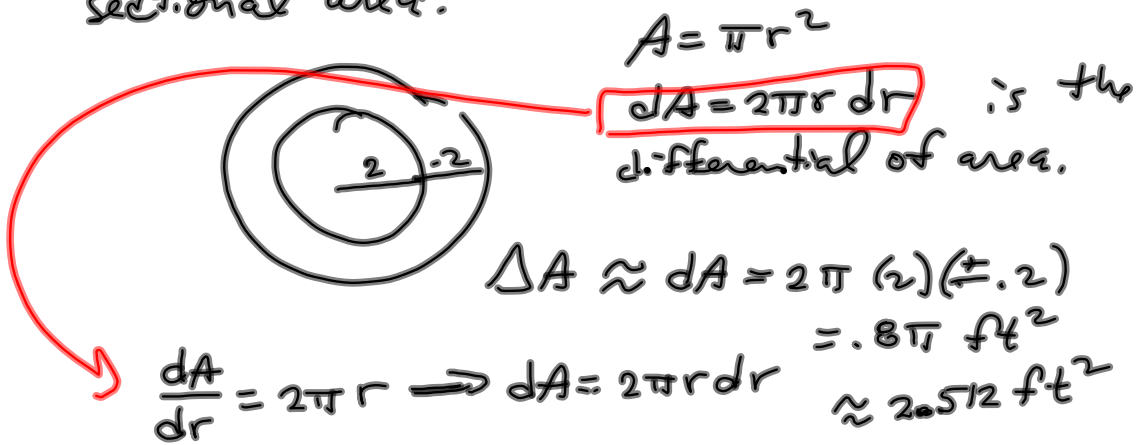 sectional area.
A = πr²
dA = 2πr dr is the
differential of area.
2 .2
ΔA ≈ dA = 2π (2)(±.2)
= .8π ft²
≈ 2.512 ft²
dA/dr = 2πr ⟹ dA = 2πr dr